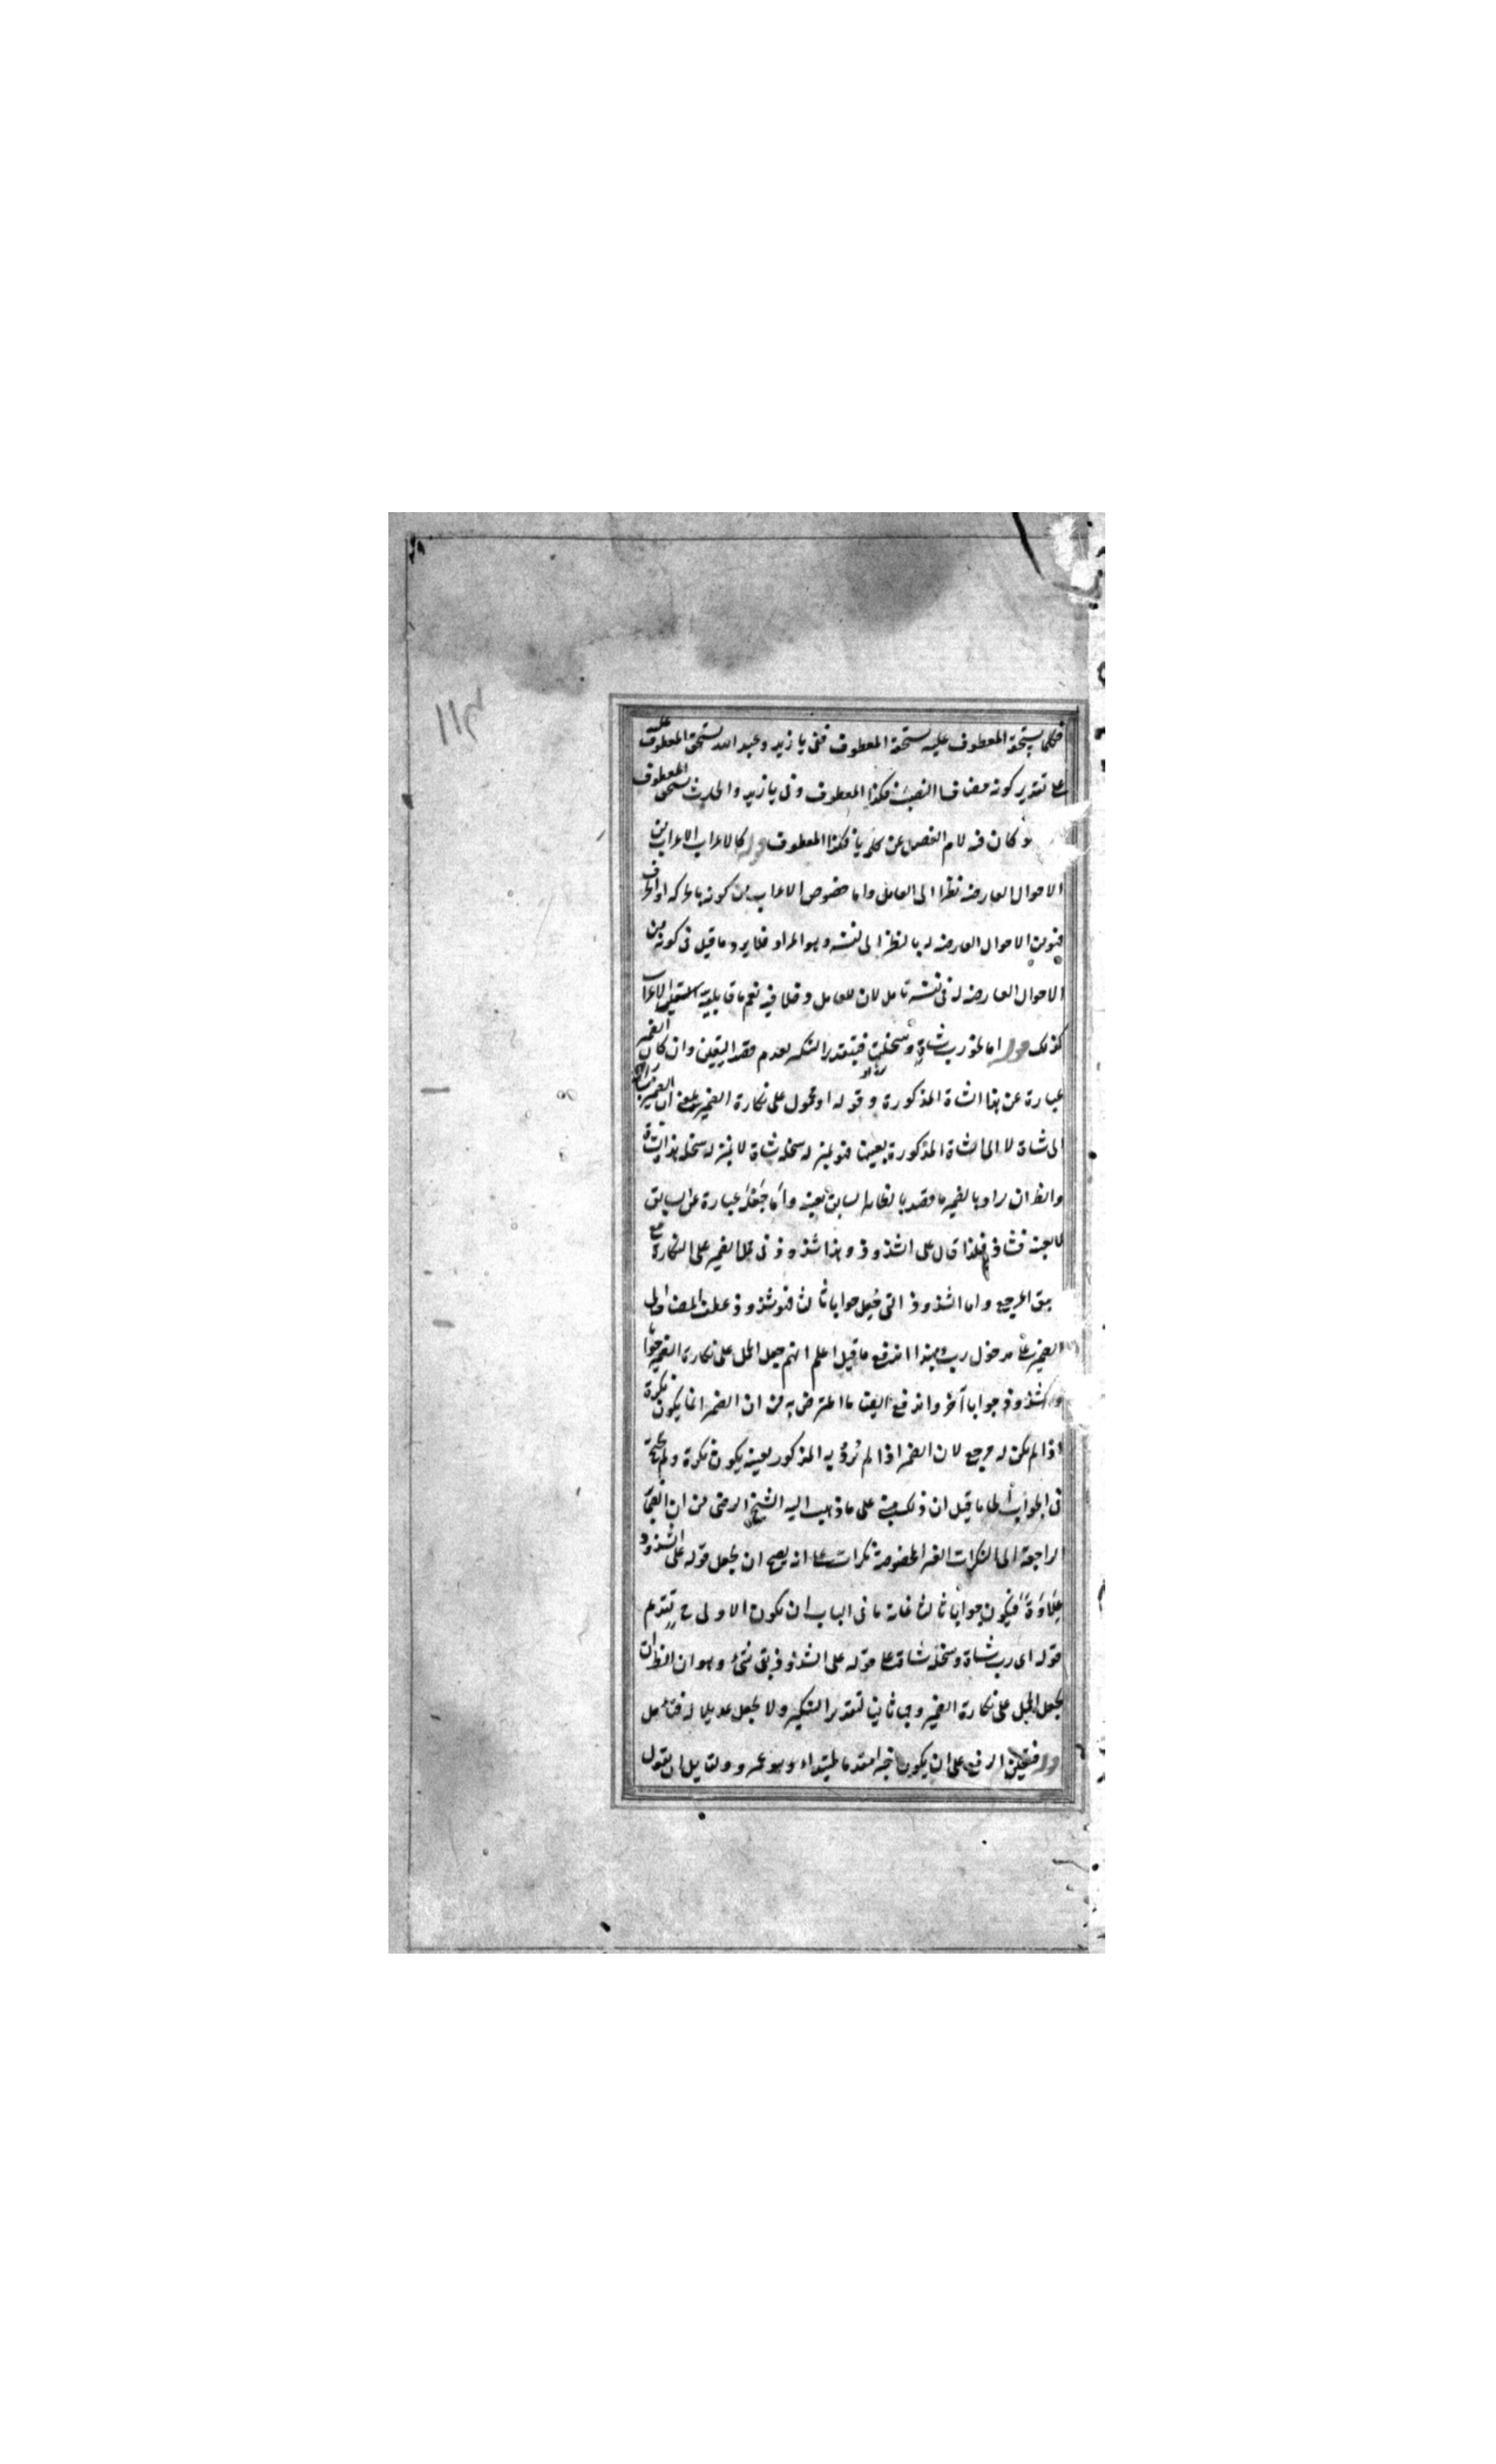 فكما يستحقه المعطوف عليه يستحقه المعطوف ففى يا زيد وعبد الله يستحق المعطوف عليه
على تقدير كونه مضافا النصب فكذا المعطوف وفى يا زيد والحارث يستحق المعطوف
لو كان فيه لام الفصل عن كلمة يا فكذا المعطوف قوله كالاعراب الاعراب من
الاحوال العارضة نظرا الى العامل واما خصوص الاعراب من كونه بالحركة او الحرف
فهو من الاحوال العارضة له بالنظر الى نفسه وهو المراد فلا يرد ما قيل فى كونه من
الاحوال العارضة له فى نفسه تأمل لان للعامل دخلا فيه نعم ما قابلية الاعراب
كذلك قوله اما نحو رب شاة وسخلتها فبتقدير التنكير لعدم قصد التعيين وان كان الضمير
عبارة عن هذا الشاة المذكورة وقوله او محمول على نكارة الضمير بمعنى ان الضمير راجع
الى شاة لا الى الشاة المذكورة بعينها فهو بمنزلة سخلة شاة لا بمنزلة سخلة هذا الشاة
والظ ان يراد بالضمير ما قصد بالظاهر السابق بعينه واما جعله عبارة عن السابق
لا بعينه فشاذ فلذا قال على الشذوذ وهذا شذوذ فى حمل الضمير على النكارة مع
سبق المرجع واما الشذوذ التى جعل جوابا ثالثا فهو شذوذ عطف المضاف الى
الضمير على مدخول رب وبهذا اندفع ما قيل اعلم انهم جعل الحمل على نكارة الضمير جوابا
والشذوذ جوابا آخر واندفع ايضا ما اعترض به من ان الضمير انما يكون نكرة
اذا لم يكن له مرجع لان الضمير اذا لم يرد به المذكور بعينه يكون نكرة ولم يحتج
فى الجواب الى ما قيل ان ذلك مبنى على ما ذهب اليه الشيخ الرضى من ان الضمير
الراجعة الى النكرات الغير المخصوصة نكرات على انه يصح ان يجعل قوله على الشذوذ
علاوة فيكون جوابا ثالثا غاية ما فى الباب ان يكون الاولى ح تقديم
قوله اى رب شاة وسخلة شاة على قوله على الشذوذ بقى شئ وهو ان الظ ان
يجعل الحمل على نكارة الضمير وجها ثانيا لتقدير التنكير ولا يجعل عديلا له فتأمل
قوله فتعين الرفع على ان يكون خبرا مقدما لمبتداء وهو عمرو ولقايل ان يقول